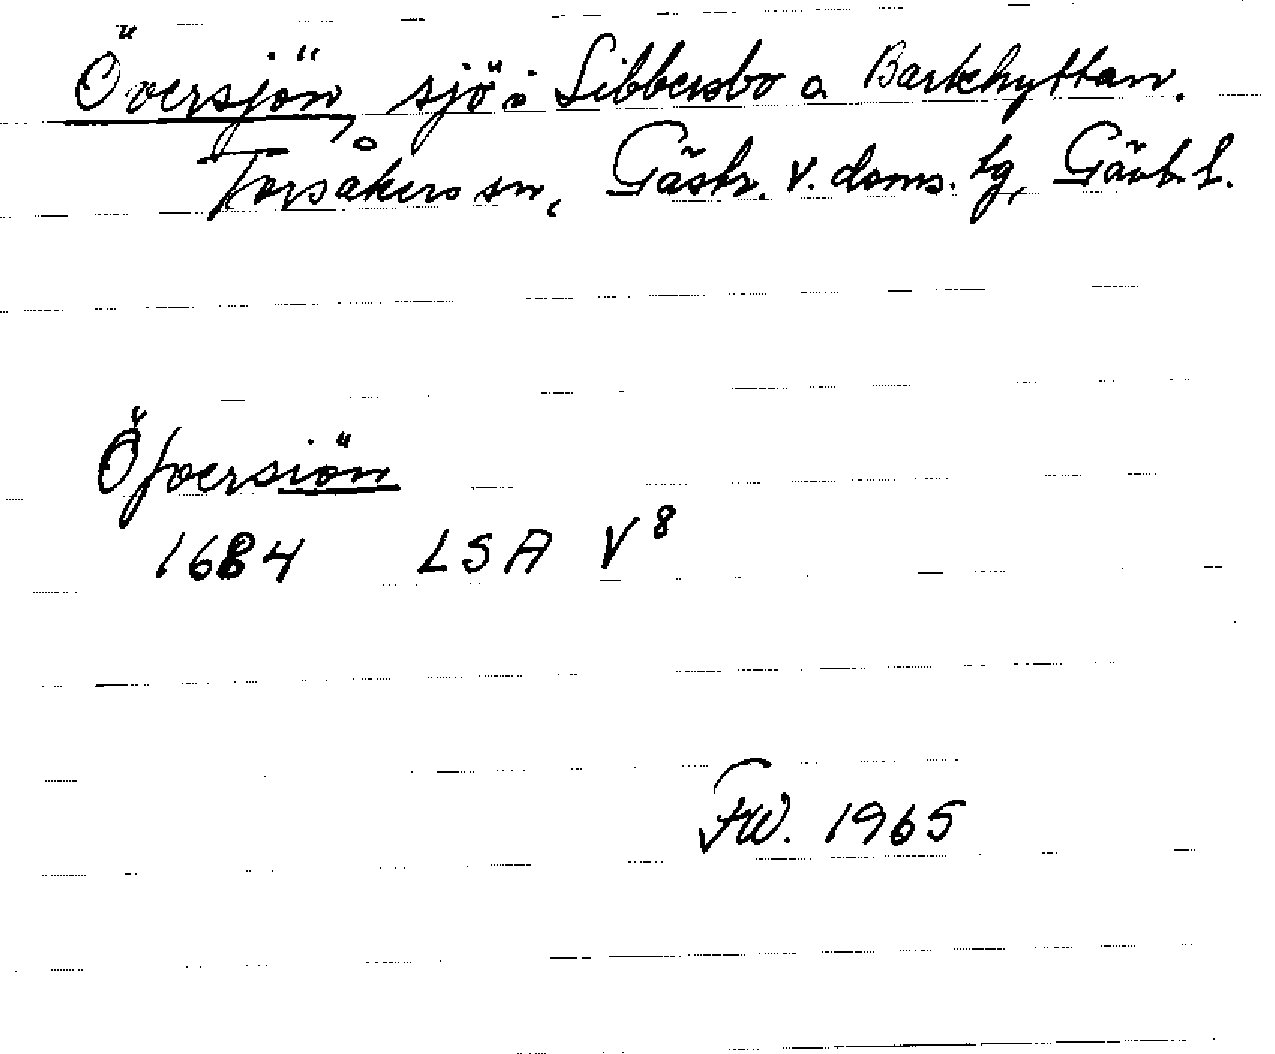 Översjön, sjö i Sibbersbo o Barkhyttan.
Torsåkers sn, Gästr. v. doms. tg, Gävl. l.
Öfversiön
1684 LSA V⁸
FW. 1965